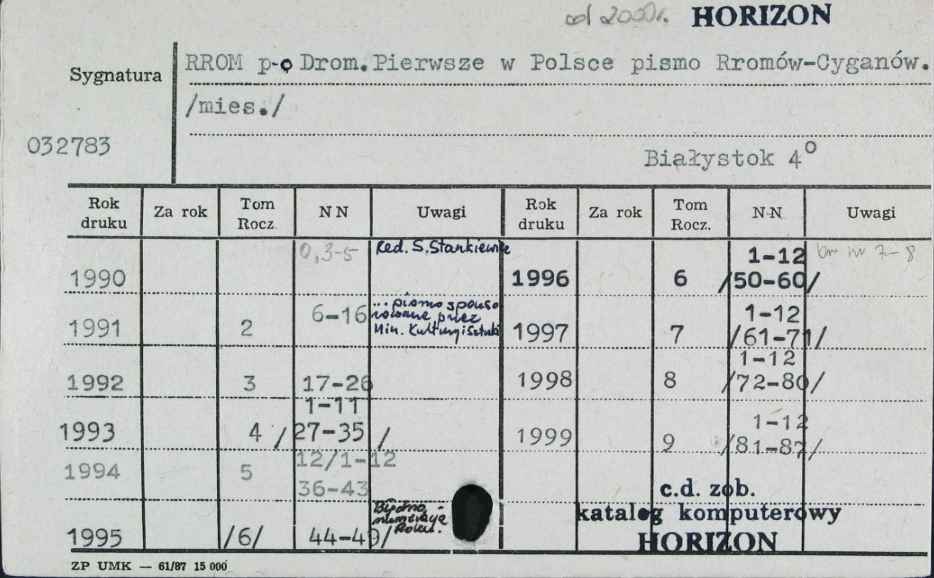 od 2000r. HORIZON
Sygnatura RROM p-o Drom. Pierwsze w Polsce pismo Rromów-Cyganów.
/mies./
032783
Białystok 4°
Rok druku Za rok Tom Rocz. NN Uwagi Rok druku Za rok Tom Rocz. N-N Uwagi
1990 0,3-5 Red. S. Stankiewicz 1996 6 1-12 /50-60/ br nr 7-8
1991 2 6-16 ...pismo sponsorowane przez Min. Kultury i Sztuki 1997 7 1-12 /61-71/
1992 3 17-26 1998 8 1-12 /72-80/
1993 4 1-11 /27-35/ 1999 9 1-12 /81-87/
1994 5 12/1-12 36-43
c.d. zob.
katalog komputerowy
1995 /6/ 44-49/ Błędna numeracja Roku.
HORIZON
ZP UMK — 61/87 15 000